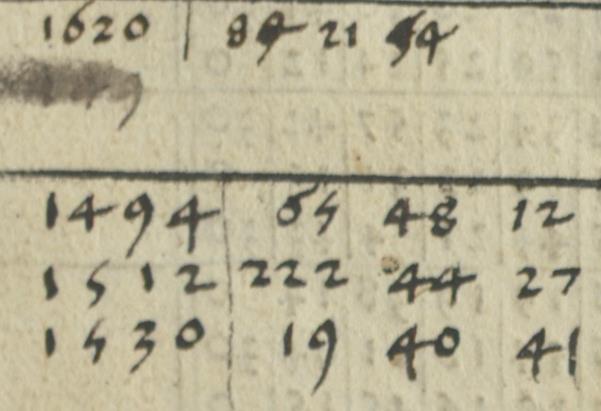 1620 | 84 21 54
1494 65 48 12
1512 222 44 27
1530 19 40 41